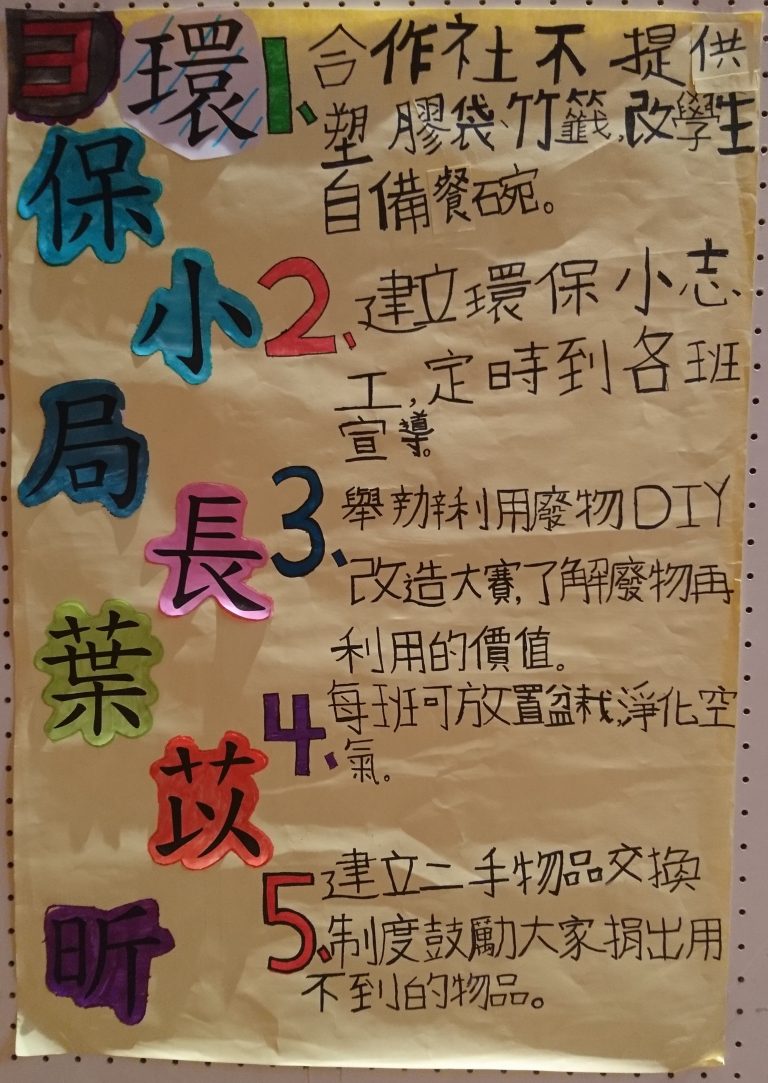 3
環保小局長葉苡昕
1、合作社不提供
塑膠袋、竹籤,改學生
自備餐碗。
2、建立環保小志
工,定時到各班
宣導。
3、舉辦利用廢物DIY
改造大賽,了解廢物再
利用的價值。
4、每班可放置盆栽,淨化空
氣。
5、建立二手物品交換
制度鼓勵大家捐出用
不到的物品。